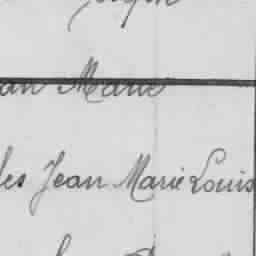 an Marie
les Jean Marie Louis